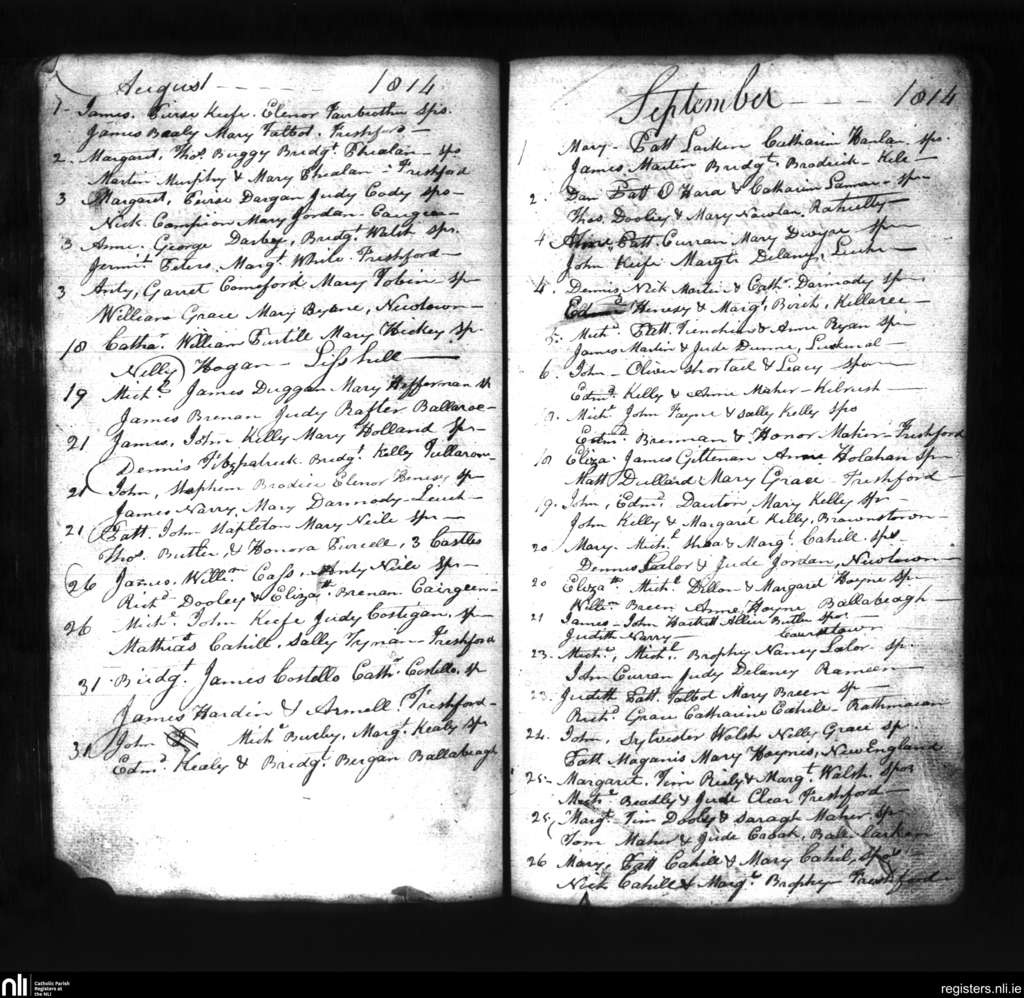 August 1814
1- James, Pierse Keefe, Elenor Fairbrother sps.
James Bealy Mary Talbot. Freshford —
2. Margaret, Thos. Buggy Bridgt. Phealan - sps
Martin Murphy & Mary Phealan - Freshford
3 Margaret, Pierse Dargan Judy Cody sps -
Nick Campion Mary Jordan -
3 Anne. George Darbey, Bridgt. Walsh sps.
Jermt. Peters, Margt. White. Freshford —
3 Anty, Garret Comeford Mary Tobin - sps
William Grace Mary Byrne, Newtown —
18 Catha. William Purtill Mary Hickey sps
Nelly Hogan - Lisshill —
19 Michl. James Duggan Mary Hefferman sps
James Brenan Judy Rafter Ballaroe -
21 James, John Kelly Mary Holland sps -
Dennis Fitzpatrick Bridgt. Kelly Tullaroan -
21 John, Stephen Brodiee Elenor Henesy sps
James Narry, Mary Darmody -
21 Patt. John Stapleton Mary Neile sps —
Thos. Butler, & Honora Purcell, 3 Castles
26 James, Willm. Cass, Anty Neile sps —
Richd. Dooley & Elizath. Brenan
26 Michl. John Keefe Judy Costigan, sps —
Mathias Cahill, Sally Tynan - Freshford
31 Bridgt. James Costello Cathr. Costello, sps
James Hardin & Armell. Freshford -
31 John Michl Burley, Margt. Kealy sps
Edmd. Kealy & Bridgt. Bergan Ballabeagh
September 1814
1 Mary - Patt Larken Catharin Hanlan. sps.
James Martin Bridgt. Brodrick - Kile —
2. Dan Patt O Hara & Catharin Lamar - sps —
Thos. Dooley & Mary Nowlan,
4 Anne, Patt. Curran Mary Dwyre sps —
John Keefe Margt. Delany,
4. Dennis, Nick Martin & Cathr. Darmody sps -
Edmd. Henesy & Margt. Birch, Killaree —
5. Michl. Patt. Trenchin & Anne Ryan sps —
James Martin & Jude Dunne,
6. John - Oliver Shortall & Leacy spon -
Edmd. Kelly & Anne Maher - Kilrush —
7. Michl. John Fayne & Sally Kelly sps
Edmd. Brennan & Honor Maher - Freshford
18 Eliza. James Gittenan Anne Holahan sps —
Matt Dullard Mary Grace - Freshford —
19. John, Edmd. Dauton Mary Kelly sps -
John Kelly & Margaret Kelly, Brownstown —
20 Mary. Michl. Shea & Margt. Cahill. sps
Dennis Lalor & Jude Jordan, Newtown —
20 Elizath. Michl. Dillon & Margaret Hoyne sps —
Willm. Breen Anne Hoyne Ballabeagh —
21 James - John Hackett Alliee Butler sps
Judith Narry — Courtstown —
23. Michl., Michl. Brophy Nancy Lalor sps.
John Curran Judy Delaney
23. Judith Patt. Talbot Mary Breen sps —
Richd. Grace Catharine Cahile - Rathmacan
24. John, Sylvester Walsh Nelly Grace sps
Patt Maganis Mary Hoynes, New England
25 - Margaret, Tim Riely & Margt. Walsh. sps
Michl. Beadly & Jude Clear Freshford —
25, Margt. Tim Dooly & Saragh Maher. sps
Tom Maher & Jude Cabak,
26 Mary, Patt Cahill & Mary Cahil, sps
Nick Cahill & Margt. Brophy Freshford —
nli Catholic Parish
Registers at
the NLI
registers.nli.ie